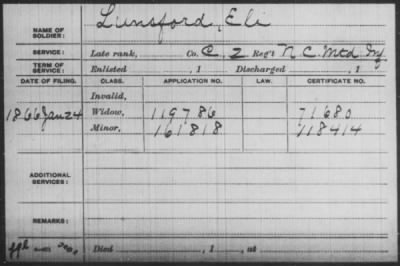 NAME OF SOLDIER: Lunsford, Eli
SERVICE: Late rank, Co. C, 2 Reg't N. C. Mtd Inf
TERM OF SERVICE: Enlisted , 1 Discharged , 1
DATE OF FILING. CLASS. APPLICATION NO. LAW. CERTIFICATE NO.
Invalid,
1866 Jan 24 Widow, 119786 71680
Minor, 161818 118414
ADDITIONAL SERVICES:
REMARKS:
Died , 1 , at